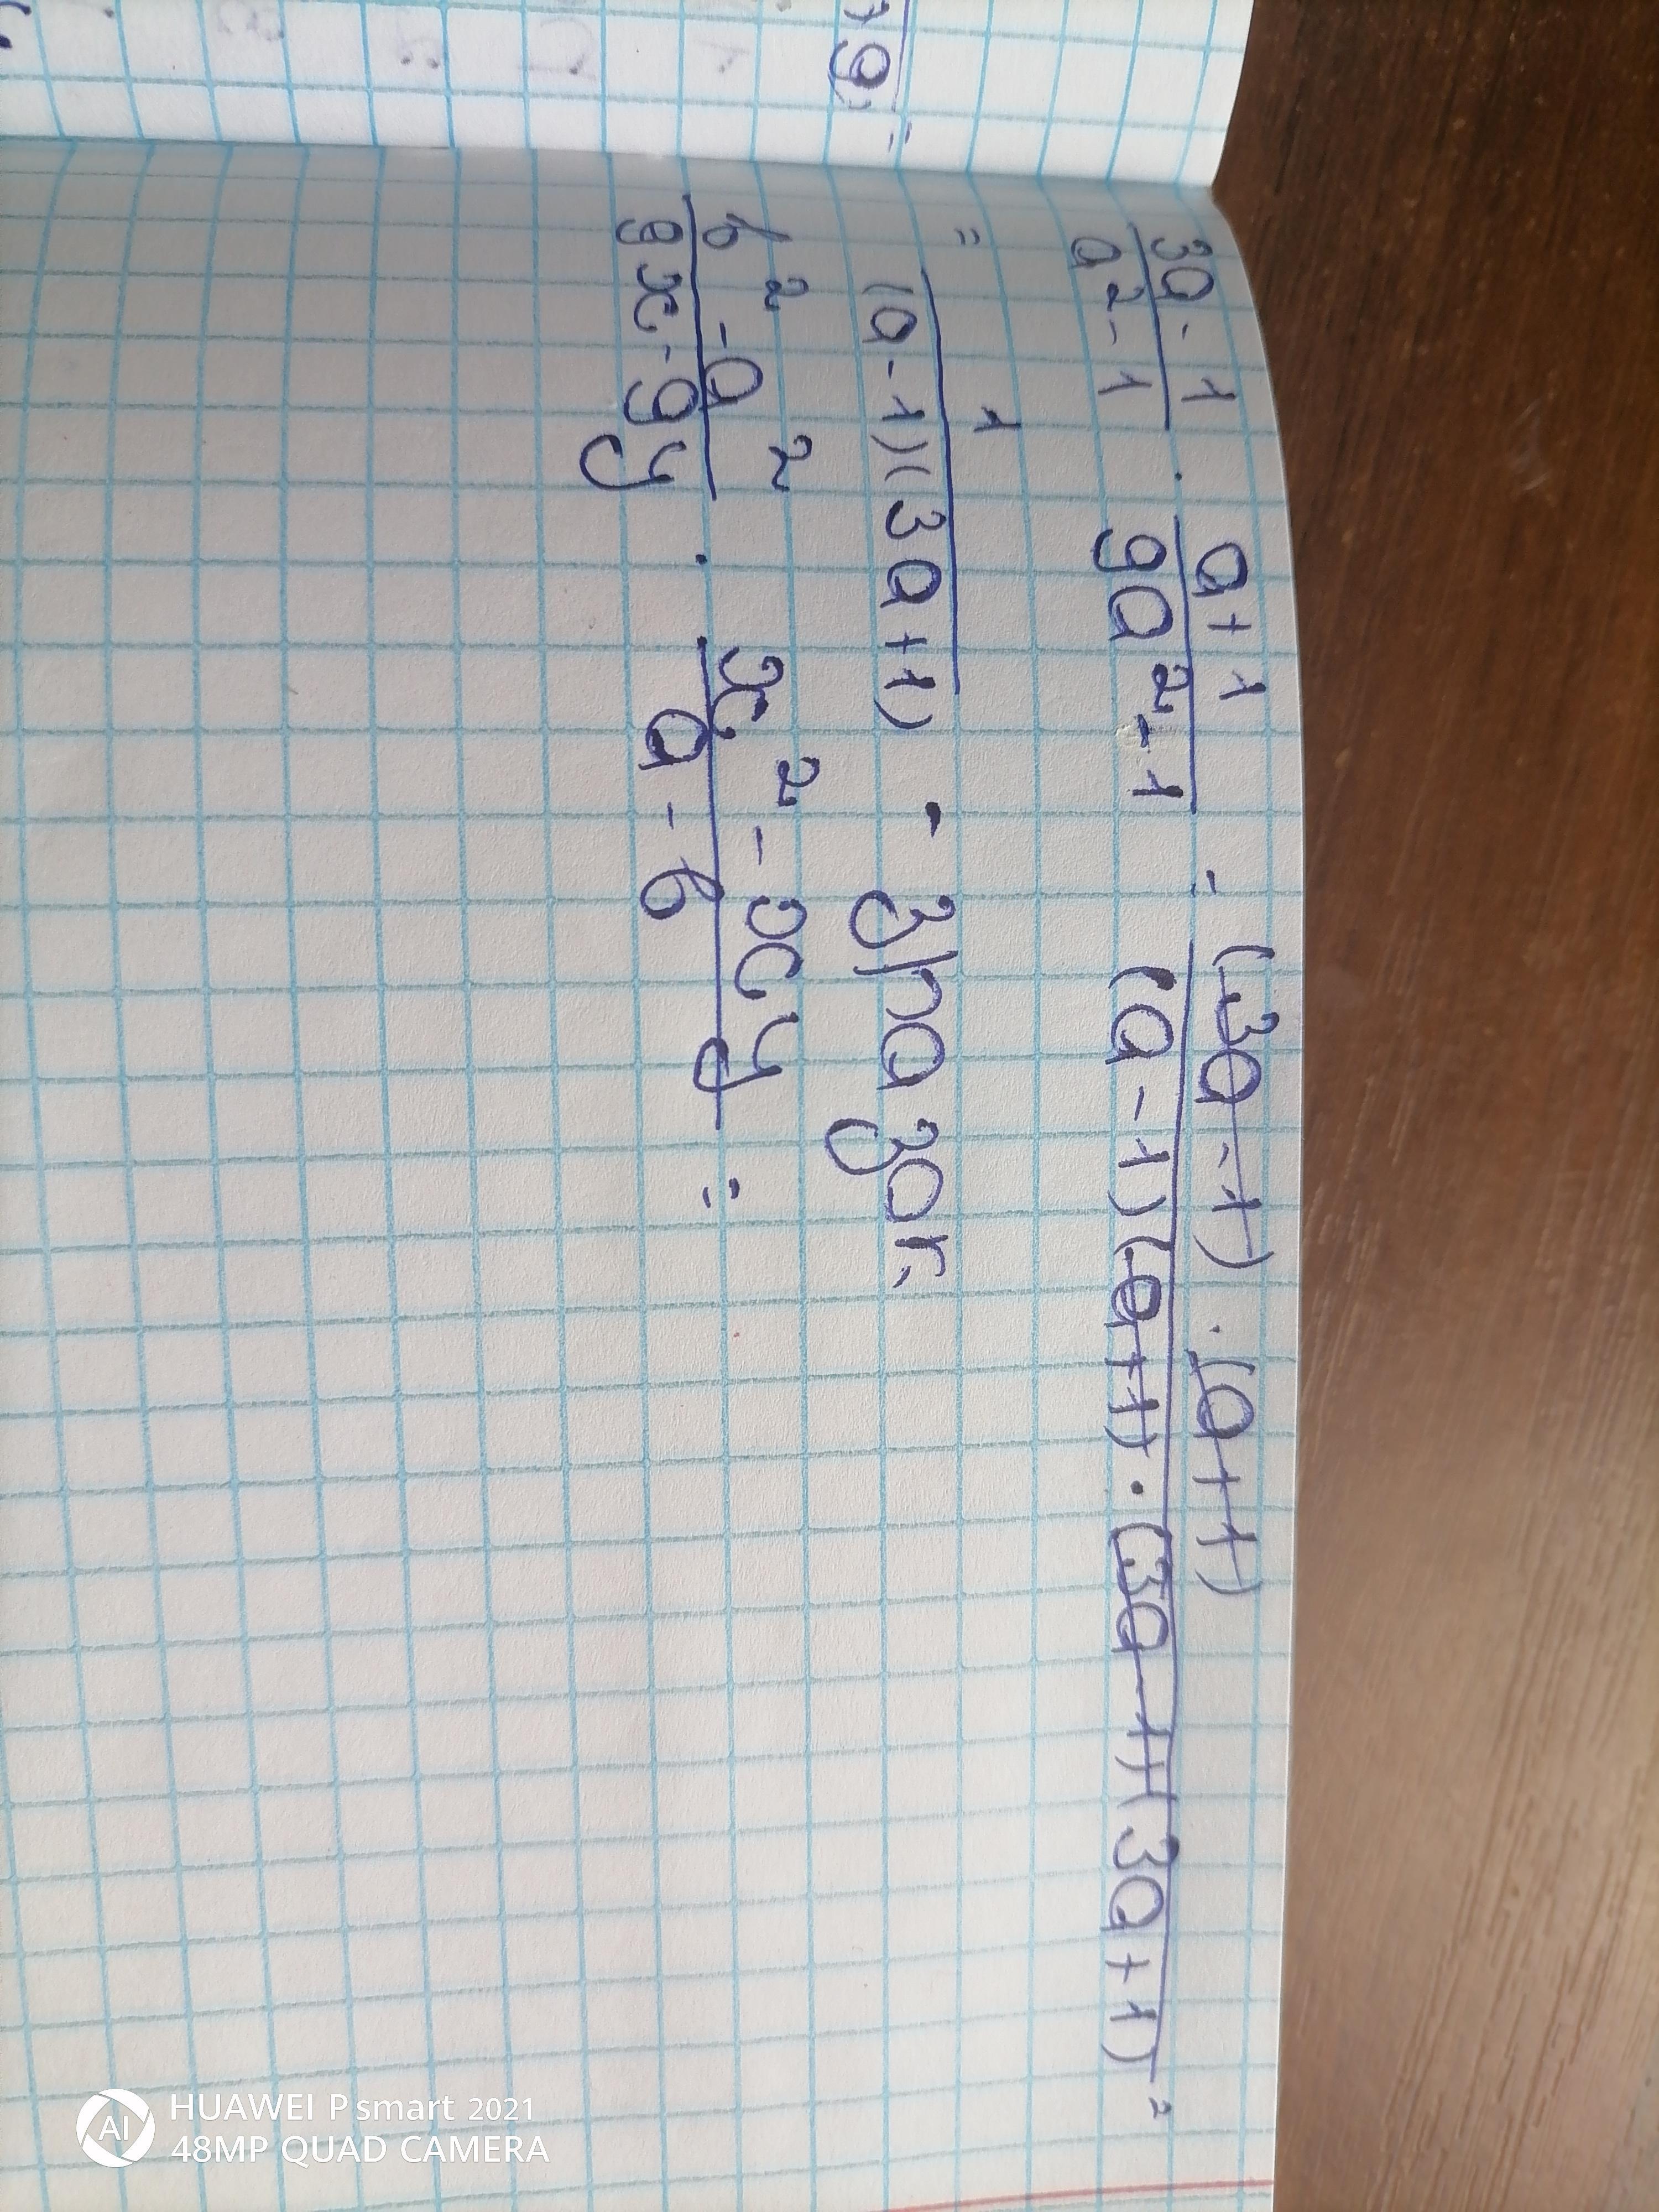 (3a-1)/(a²-1) · (a+1)/(9a²-1) = ((3a-1)·(a+1))/((a-1)(a+1)·(3a-1)(3a+1)) =
= 1/((a-1)(3a+1))
(b²-a²)/(9x-9y) · (x²-xy)/(a-b) =
HUAWEI P smart 2021
48MP QUAD CAMERA
AI